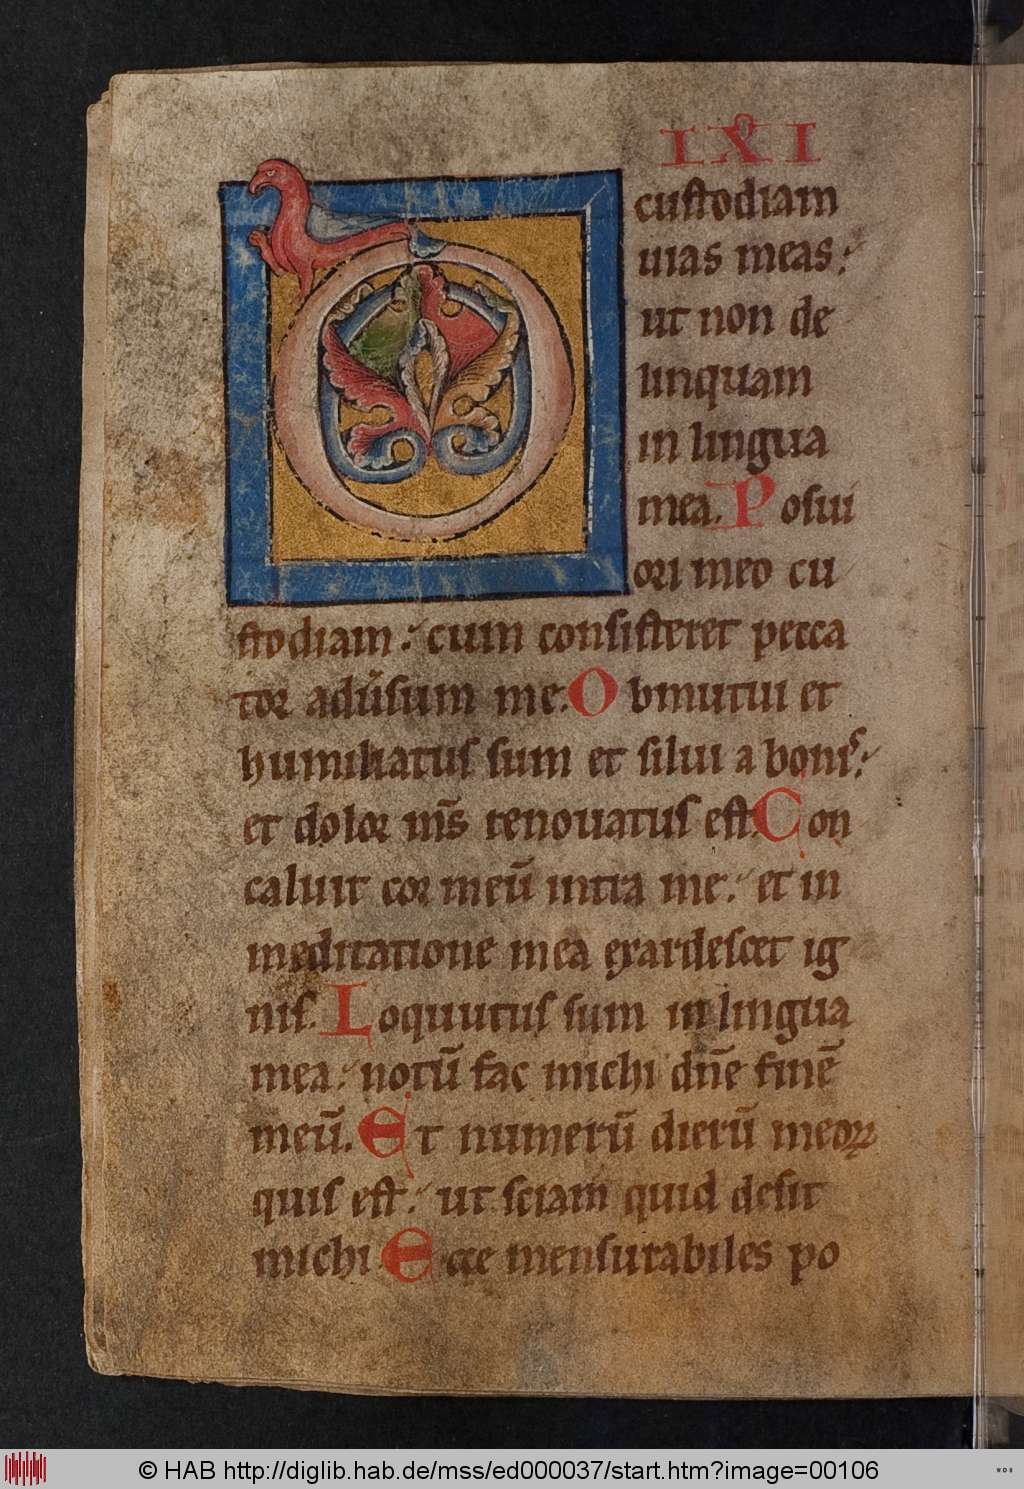 DIXI
custodiam
uias meas:
ut non de
linquam
in lingua
mea. Posui
ori meo cu
stodiam: cum consisteret pecca
tor adu̅sum me. Obmutui et
humiliatus sum et silui a bonis:
et dolor m̅s renouatus est. Con
caluit cor meu̅ intra me: et in
meditatione mea exardescet ig
nis. Loquutus sum in lingua
mea: notu̅ fac michi dn̅e fine̅
meu̅. Et numeru̅ dieru̅ meoꝝ
quis est: ut sciam quid desit
michi Ecce mensurabiles po
© HAB http://diglib.hab.de/mss/ed000037/start.htm?image=00106